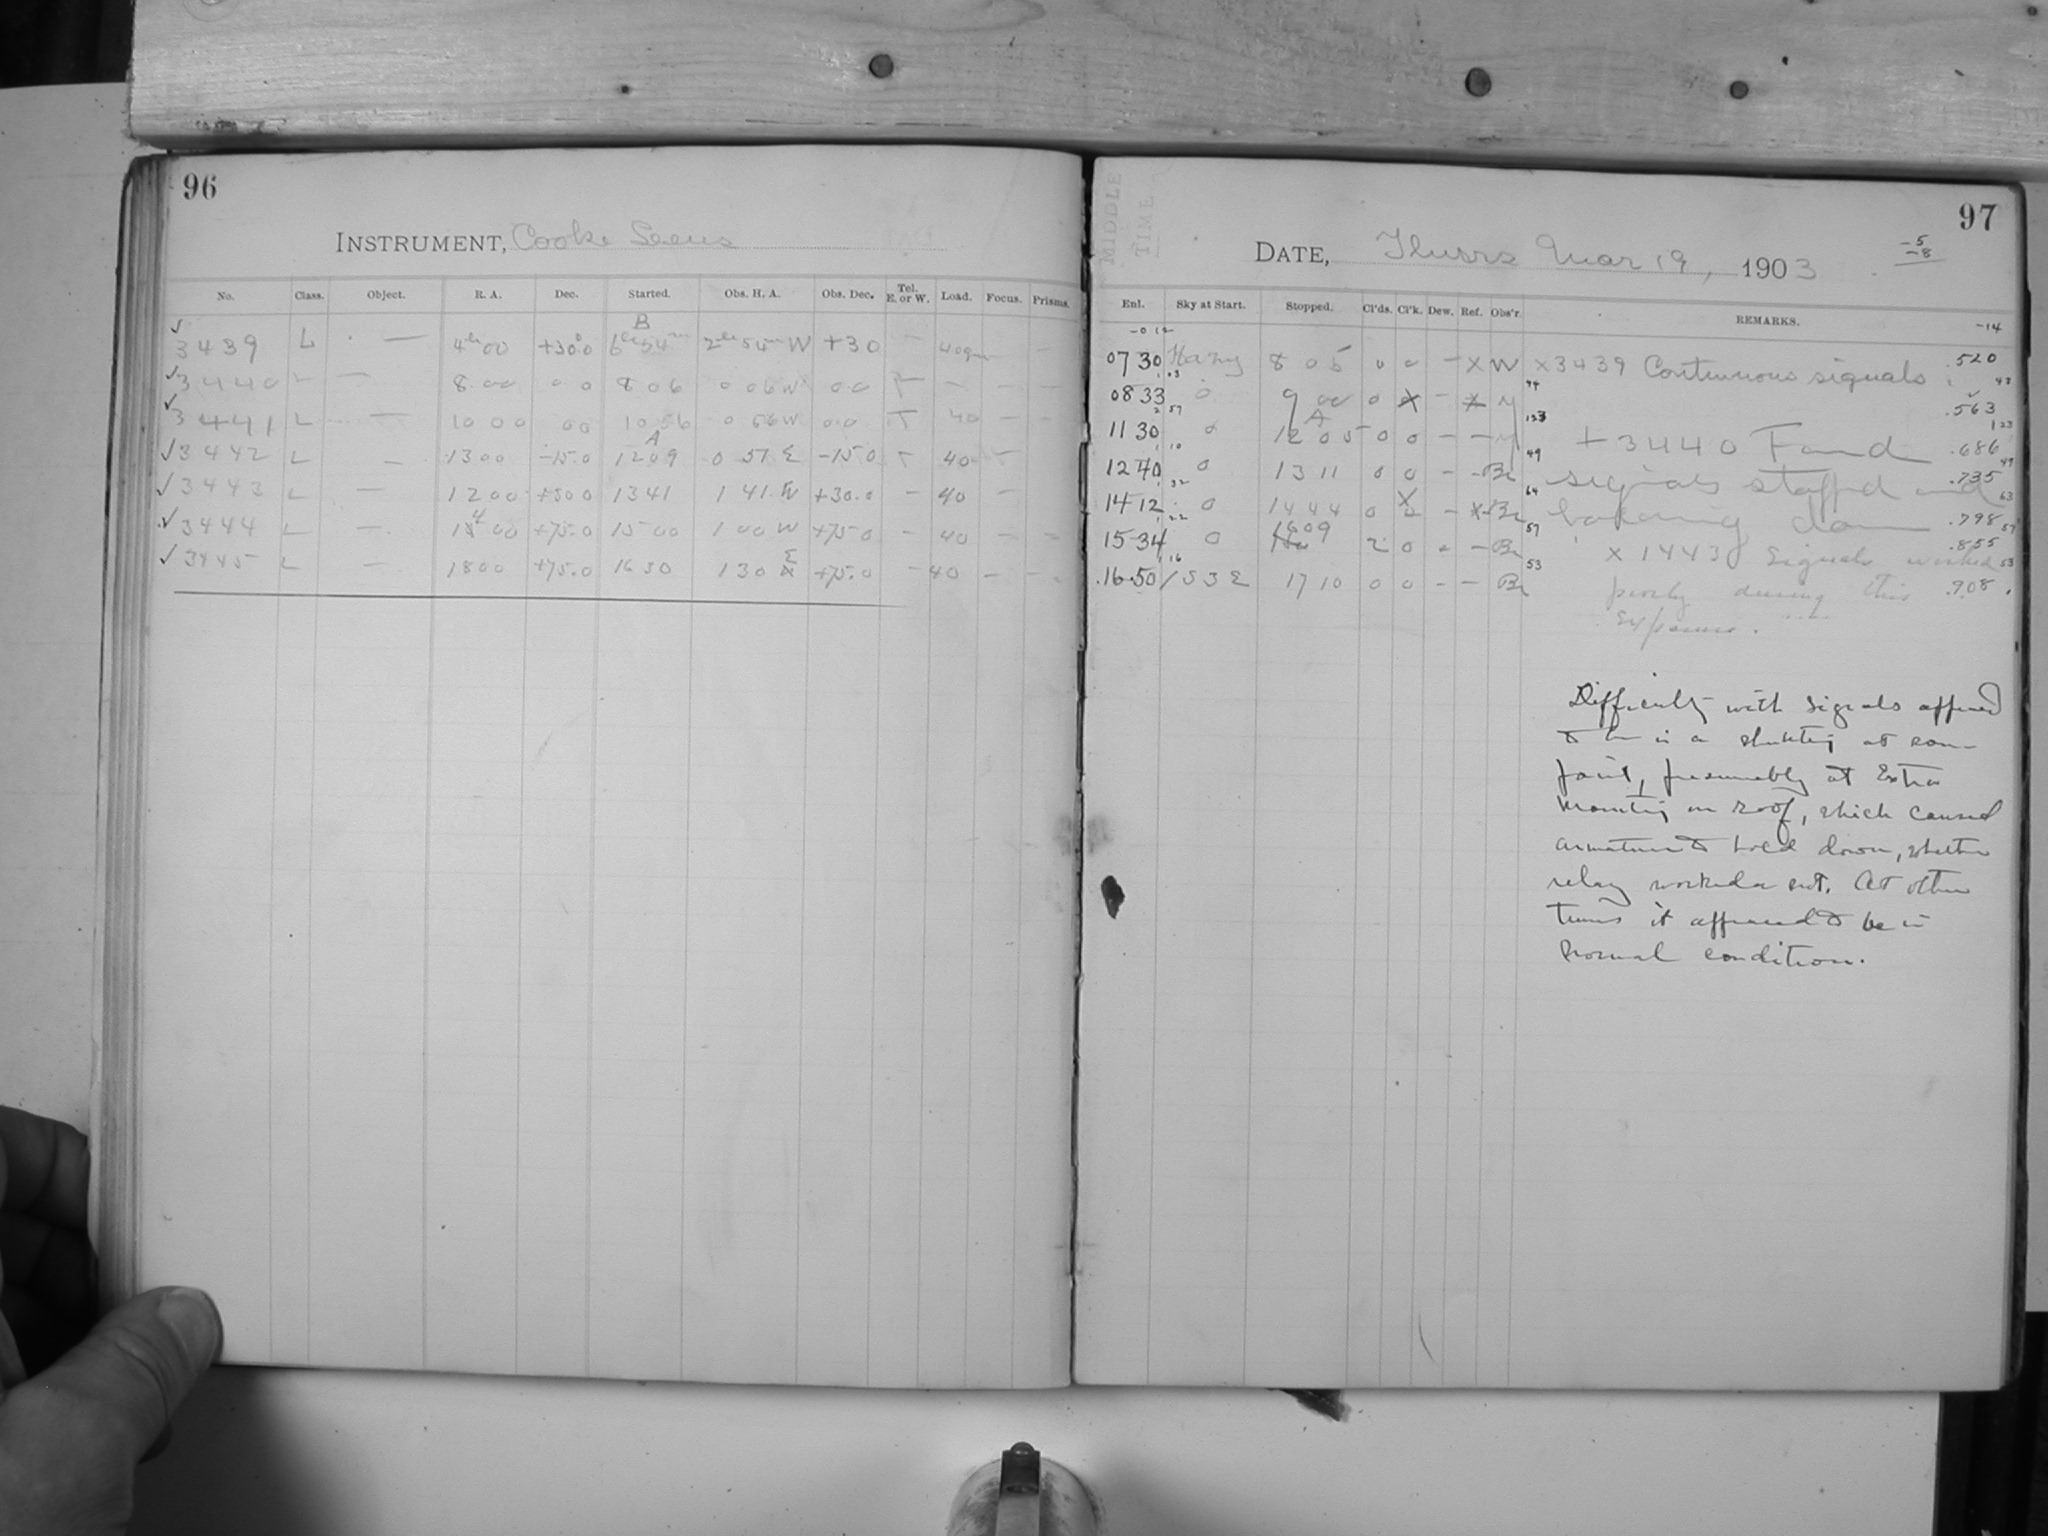 96
INSTRUMENT, Cooke Lens
No. Class. Object. R. A. Dec. Started. Obs. H. A. Obs. Dec. Tel. E. or W. Load. Focus. Prisms.
B
√ 3439 L — 4h 00 +30.0 6h 54m 2h 54m W +30 — 40gm —
√ 3440 L — 8 00 00 8 06 0 06 W 00 — —
√ 3441 L — 10 00 00 10 56 0 56 W 00 40 — —
A
√ 3442 L — 13 00 -15.0 12 09 0 51 E -15.0 40 —
√ 3443 L — 12 00 +30 0 13 41 1 41 W +30.0 — 40 —
√ 3444 L — 14 00 +75.0 15 00 1 00 W +75.0 — 40 — —
√ 3445 L — 18 00 +75.0 16 30 1 30 E +75.0 — 40 — —
97
MIDDLE
TIME
DATE, Thurs Mar 19, 1903
-5
-8
Enl. Sky at Start. Stopped. Cl'ds. Cl'k. Dew. Ref. Obs'r. REMARKS.
-0 12
-14
07 30 Hazy 8 05 0 0 — X W x3439 Continuous signals .520
1 03 44 43
08 33 0 9 00 0 X — X M .563
2 57 A 123 123
11 30 0 12 05 0 0 — — M +3440 Found .686
1 10 49 49
12 40 0 13 11 0 0 — - Br signals stopped and .735
1 32 64 63
14 12 0 14 44 0 X — X Br down .798
1 22 57 57
15 34 0 16 09 2 0 - — Br x 1443 Signals worked .855
1 16 53 53
16.50 1 S 3 E 17 10 0 0 — — Br poorly during this .908
exposure.
Difficulty with signals appeared
to be in a shunting at some
point, presumably at Extra
mounting on roof, which caused
armature to hold down, whether
relay worked or not. At other
times it appeared to be in
normal condition.